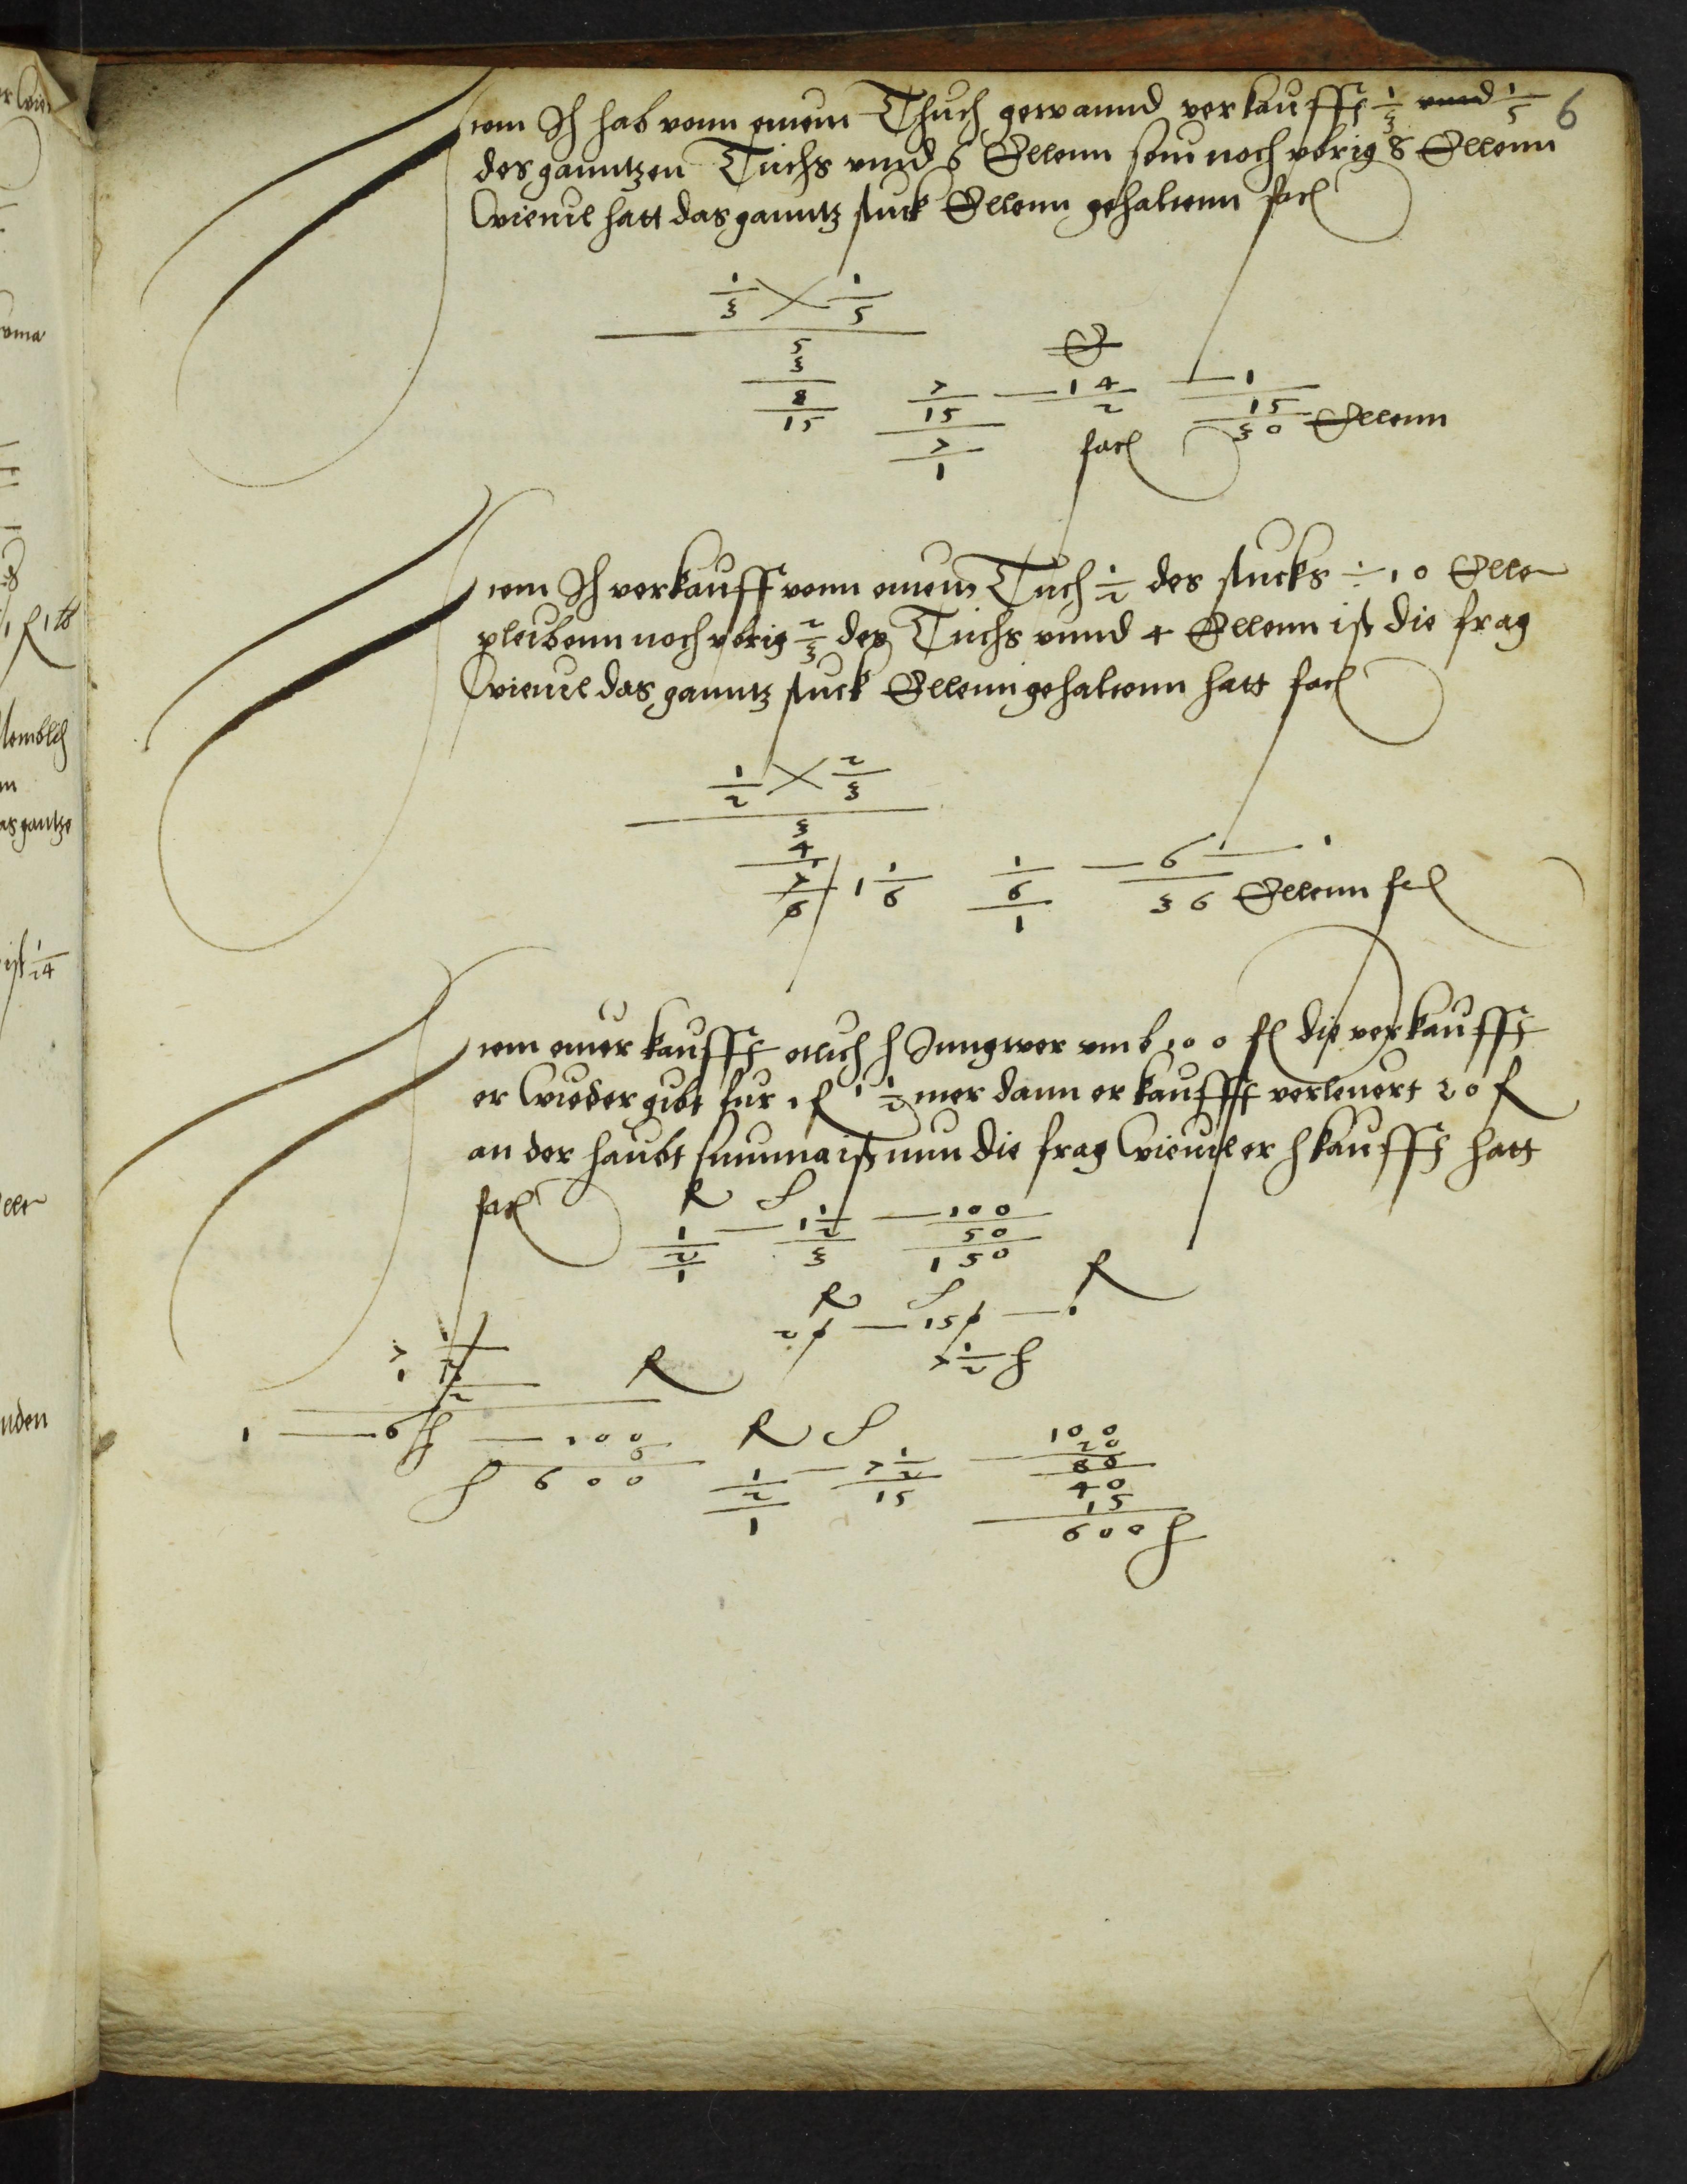 6
Item Ich hab vonn einem Thuch gewannd verkaufft 1/3 vnnd 1/5
des ganntzen Tuchs vnnd 6 Ellenn sein noch vbrig 8 Ellenn
Wieuil hatt das ganntz stuck Ellenn gehaltenn facit
1/3 1/5
5
3
8/15
7/15 — 14 — 1
2 15
7/1 facit 30 Ellenn
Item Ich verkauff vonn einem Tuch 1/2 des stucks ÷ 10 Elle
pleibenn noch vbrig 2/3 des Tuchs vnnd 4 Ellenn ist die frag
Wieuil das ganntz stuck Ellenn gehaltenn hatt facit
1/2 2/3
3
4
7/6 1 1/6 1/6 — 6 — 1
1 36 Ellenn fc
Item einer kaufft etlich Inngwer vmb 100 fl die verkaufft
er wieder gibt fur 1 fl 1 1/2 mer dann er kaufft verleuert 20 fl
an der haubt summa ist nun die frag Wieuil er kaufft hatt
facit
1 — 1 1/2 — 100
2 3 50
1 150
20 — 150 — 1
7 1/2
7 1/2
1 1/2
1 — 6 — 100
6
600
1 — 7 1/2 — 100
2 15 20
1 80
40
15
600